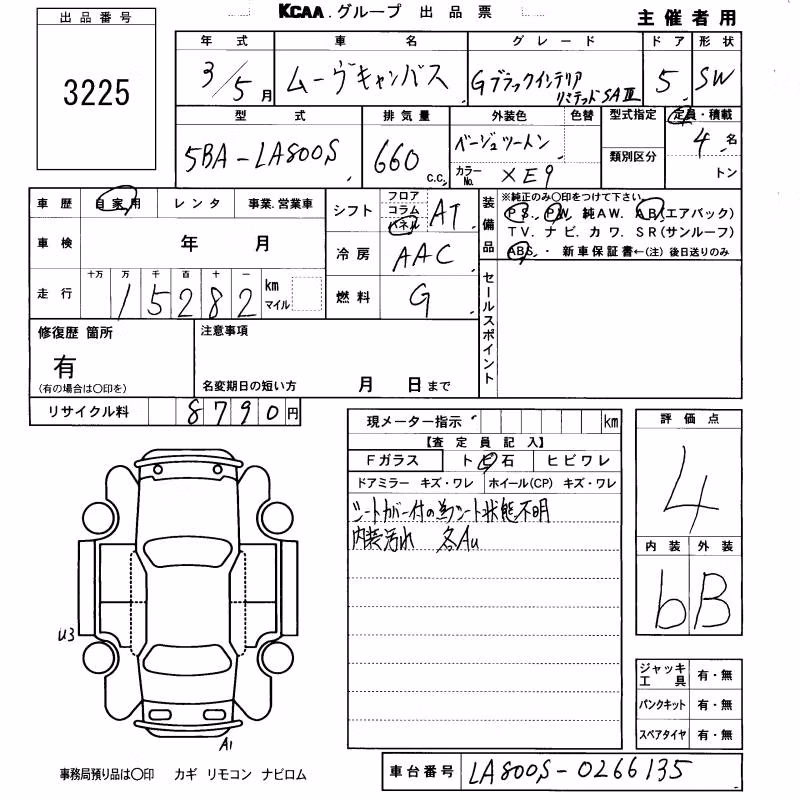 KCAA.グループ 出品票
主催者用
出品番号
3225
年式 車名 グレード ドア 形状
3/5月 ムーヴキャンバス Gブラックインテリア 5 SW
リミテッドSAⅢ
型式 排気量 外装色 色替 型式指定 定員・積載
5BA-LA800S 660 c.c. ベージュツートン 4名
類別区分
カラーNo. XE9 トン
車歴 自家用 レンタ 事業.営業車
シフト フロア コラム パネル AT
装備品
※純正のみ〇印をつけて下さい
PS. PW. 純AW. AB(エアバック)
TV. ナビ. カワ. SR(サンルーフ)
ABS. ・ 新車保証書←(注) 後日送りのみ
車検 年 月
冷房 AAC
走行 十万 万 千 百 十 一
15282 km マイル
燃料 G
セールスポイント
修復歴 箇所
有
(有の場合は〇印を)
注意事項
名変期日の短い方 月 日まで
リサイクル料 8790円
現メーター指示 km
【査定員記入】
Fガラス トビ石 ヒビワレ
ドアミラー キズ・ワレ ホイール(CP) キズ・ワレ
シートカバー付の為シート状態不明
内装汚れ 各AU
評価点
4
内装 外装
b B
U3
A1
ジャッキ工具 有・無
パンクキット 有・無
スペアタイヤ 有・無
事務局預り品は〇印 カギ リモコン ナビロム
車台番号 LA800S-0266135